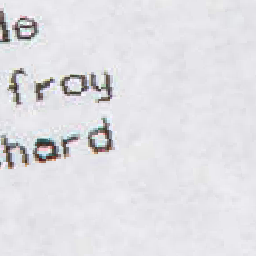 de
froy
hard